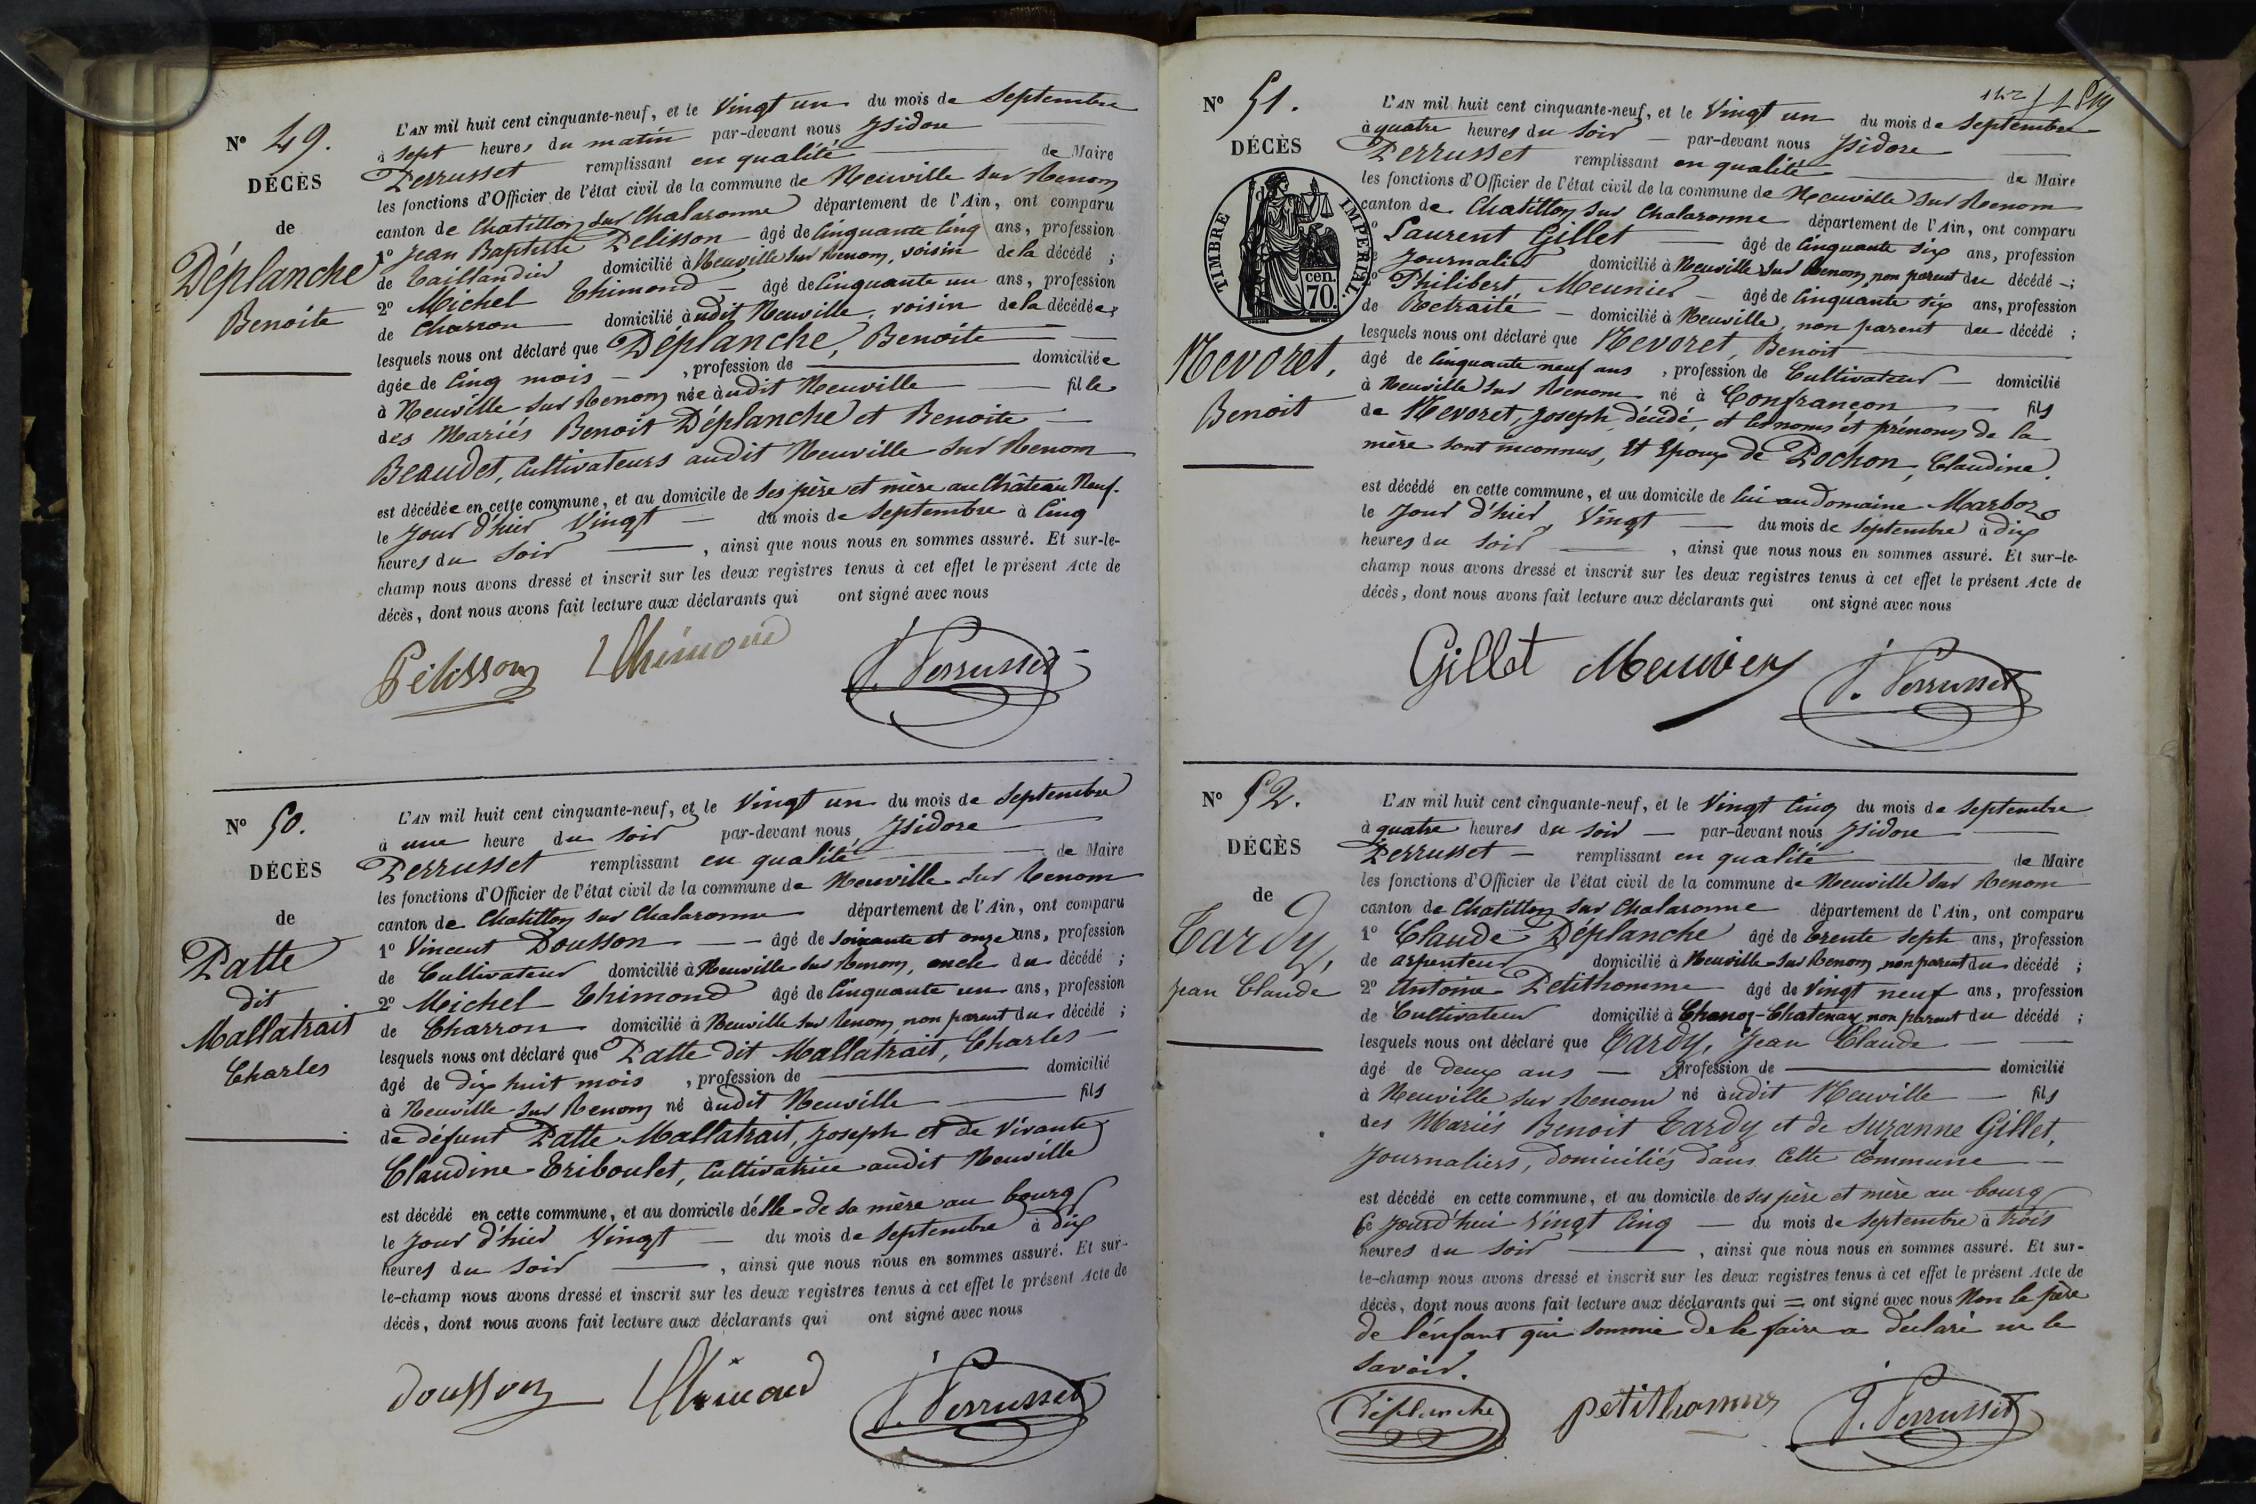 N° 49.
DÉCÈS
de
Déplanche
Benoite
L'AN mil huit cent cinquante-neuf, et le Vingt un du mois de Septembre
à sept heures du matin par-devant nous Isidore
Perrusset remplissant en qualité de Maire
les fonctions d'Officier de l'état civil de la commune de Neuville sur Renom
canton de Chatillon sur Chalaronne département de l'Ain, ont comparu
1° Jean Baptiste Pelisson âgé de Cinquante Cinq ans, profession
de Taillandier domicilié à Neuville sur Renom, voisin de la décédé ;
2° Michel Thimond âgé de Cinquante un ans, profession
de Charron domicilié audit Neuville, voisin de la décédée ;
lesquels nous ont déclaré que Déplanche, Benoite
âgée de Cinq mois , profession de domiciliée
à Neuville sur Renom née audit Neuville fille
des Mariés Benoit Déplanche et Benoite
Beaudet, Cultivateurs audit Neuville sur Renom
est décédée en cette commune, et au domicile de ses père et mère au Château Neuf.
le jour d'hier Vingt du mois de Septembre à Cinq
heures du Soir , ainsi que nous nous en sommes assuré. Et sur-le-
champ nous avons dressé et inscrit sur les deux registres tenus à cet effet le présent Acte de
décès, dont nous avons fait lecture aux déclarants qui ont signé avec nous
Pélisson Thimond J. Perrusset
N° 50.
DÉCÈS
de
Patte
dit
Mallatrait
Charles
L'AN mil huit cent cinquante-neuf, et le Vingt un du mois de Septembre
à une heure du soir par-devant nous Isidore
Perrusset remplissant en qualité de Maire
les fonctions d'Officier de l'état civil de la commune de Neuville sur Renom
canton de Chatillon sur Chalaronne département de l'Ain, ont comparu
1° Vincent Dousson âgé de soixante et onze ans, profession
de Cultivateur domicilié à Neuville sur Renom, oncle du décédé ;
2° Michel Thimond âgé de Cinquante un ans, profession
de Charron domicilié à Neuville sur Renom, non parent du décédé ;
lesquels nous ont déclaré que Patte dit Mallatrait, Charles
âgé de dix huit mois , profession de domicilié
à Neuville sur Renom né audit Neuville fils
de défunt Patte Mallatrait, Joseph et de Vivante
Claudine Triboulet, Cultivatrice audit Neuville
est décédé en cette commune, et au domicile d'elle de sa mère au bourg
le jour d'hier Vingt du mois de Septembre à dix
heures du Soir , ainsi que nous nous en sommes assuré. Et sur-
le-champ nous avons dressé et inscrit sur les deux registres tenus à cet effet le présent Acte de
décès, dont nous avons fait lecture aux déclarants qui ont signé avec nous
Dousson Thimond J. Perrusset
N° 51.
DÉCÈS
TIMBRE IMPÉRIAL
cen.
70.
Nevoret,
Benoit
L'AN mil huit cent cinquante-neuf, et le Vingt un du mois de Septembre
à quatre heures du Soir par-devant nous Isidore
Perrusset remplissant en qualité de Maire
les fonctions d'Officier de l'état civil de la commune de Neuville sur Renom
canton de Chatillon sur Chalaronne département de l'Ain, ont comparu
Laurent Gillet âgé de Cinquante six ans, profession
Journalier domicilié à Neuville sur Renom, non parent du décédé ;
Philibert Meunier âgé de Cinquante six ans, profession
de Retraité domicilié à Neuville, non parent du décédé ;
lesquels nous ont déclaré que Nevoret, Benoit
âgé de Cinquante neuf ans , profession de Cultivateur domicilié
à Neuville sur Renom né à Confrançon fils
de Nevoret, Joseph, décédé, et les noms et prénoms de la
mère sont inconnus, et Epoux de Pochon, Claudine.
est décédé en cette commune, et au domicile de lui au domaine Marboz
le jour d'hier, Vingt du mois de Septembre à dix
heures du Soir , ainsi que nous nous en sommes assuré. Et sur-le-
champ nous avons dressé et inscrit sur les deux registres tenus à cet effet le présent Acte de
décès, dont nous avons fait lecture aux déclarants qui ont signé avec nous
Gillet Meunier J. Perrusset
N° 52.
DÉCÈS
de
Tardy,
Jean Claude
L'AN mil huit cent cinquante-neuf, et le Vingt Cinq du mois de Septembre
à quatre heures du Soir par-devant nous Isidore
Perrusset remplissant en qualité de Maire
les fonctions d'Officier de l'état civil de la commune de Neuville sur Renom
canton de Chatillon sur Chalaronne département de l'Ain, ont comparu
1° Claude Déplanche âgé de Trente sept ans, profession
de arpenteur domicilié à Neuville sur Renom, non parent du décédé ;
2° Antoine Petithomme âgé de Vingt neuf ans, profession
de Cultivateur domicilié à Chanoz-Chatenay, non parent du décédé ;
lesquels nous ont déclaré que Tardy, Jean Claude
âgé de deux ans profession de domicilié
à Neuville sur Renom né audit Neuville fils
des Mariés Benoit Tardy et de Suzanne Gillet,
Journaliers, domiciliés dans Cette Commune
est décédé en cette commune, et au domicile de ses père et mère au bourg
Ce jourd'hui Vingt Cinq du mois de Septembre à trois
heures du Soir , ainsi que nous nous en sommes assuré. Et sur-
le-champ nous avons dressé et inscrit sur les deux registres tenus à cet effet le présent Acte de
décès, dont nous avons fait lecture aux déclarants qui = ont signé avec nous Non le père
de l'enfant qui sommé de le faire a déclaré ne le
savoir.
Déplanche petithomme J. Perrusset